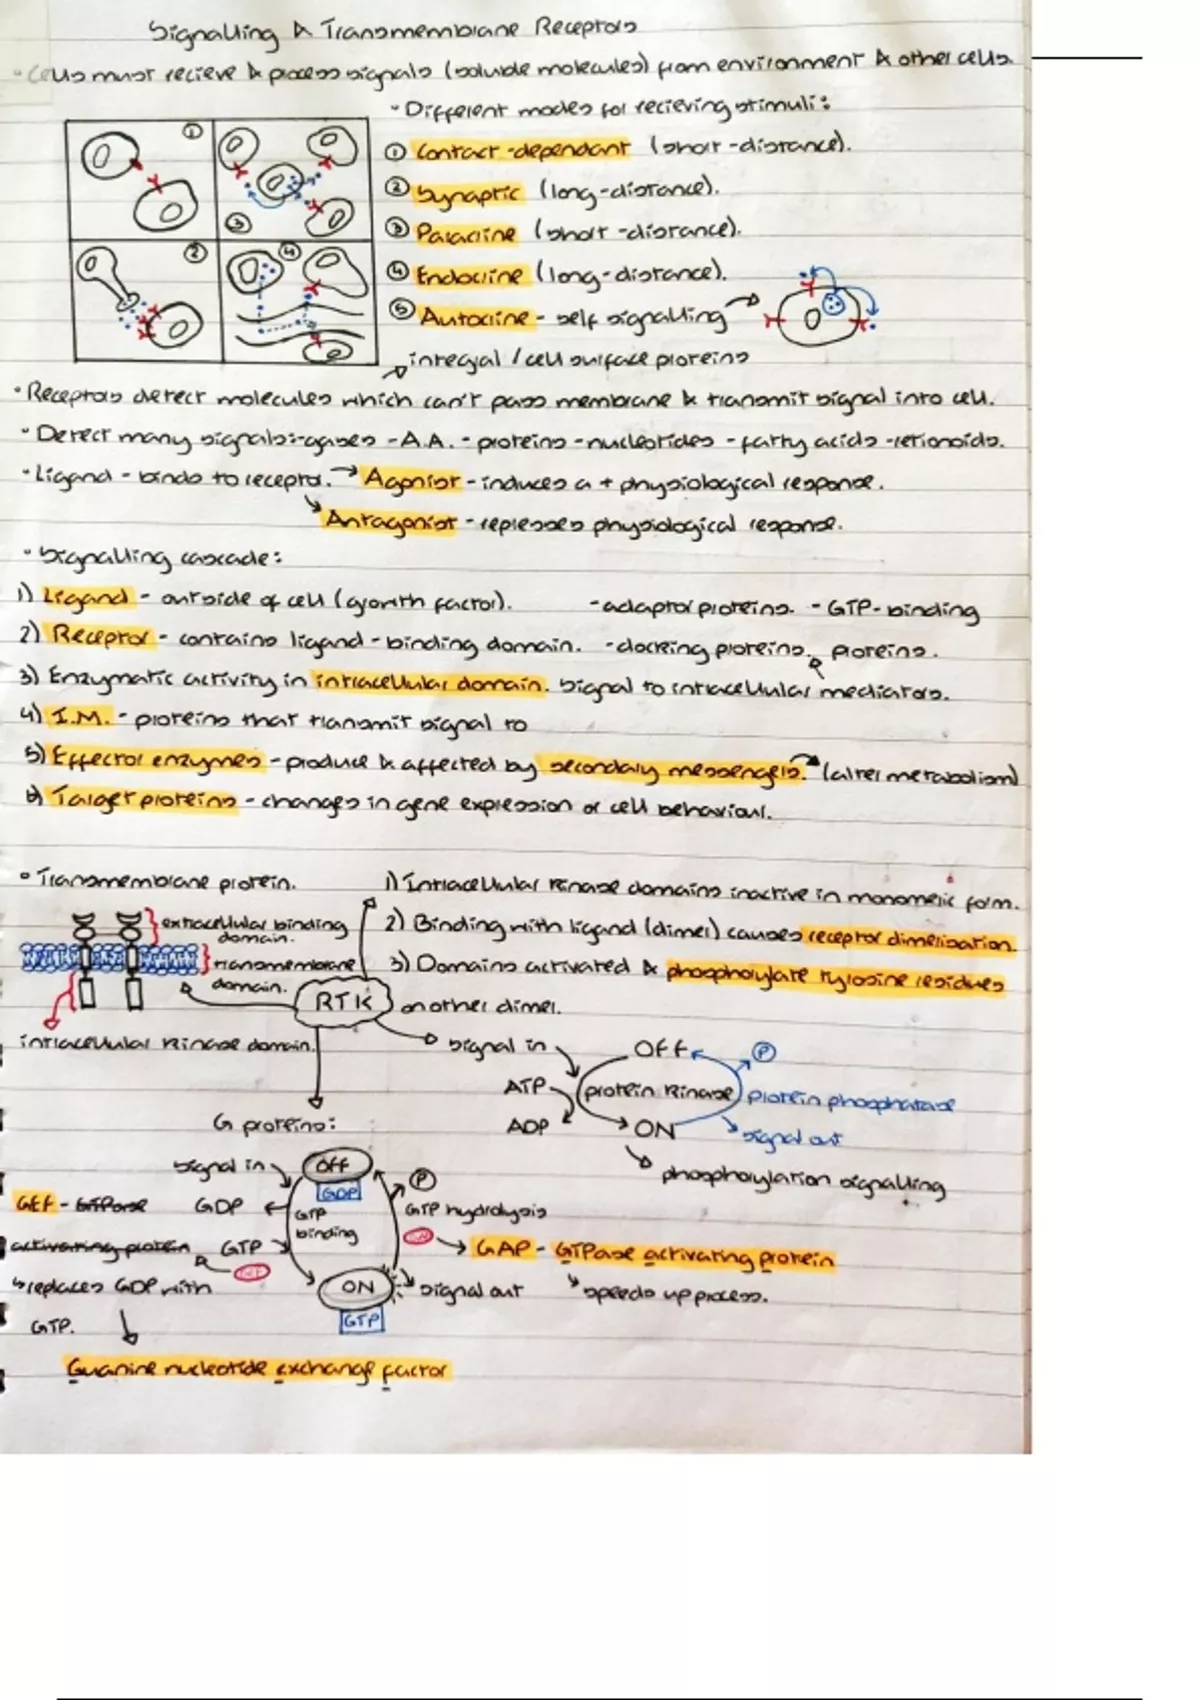 Signalling & Transmembrane Receptors
• Cells must recieve & process signals (soluble molecules) from environment & other cells.
• Different modes for recieving stimuli:
① Contact-dependant (short-distance).
② Synaptic (long-distance).
③ Paracrine (short-distance).
④ Endocrine (long-distance).
⑤ Autocrine - self signalling
①
③
②
④
integral / cell surface proteins
• Receptors detect molecules which can't pass membrane & transmit signal into cell.
• Detect many signals:-gases -A.A. -proteins -nucleotides -fatty acids -retionoids.
• Ligand - binds to receptor. → Agonist - induces a + physiological response.
Antagonist - represses physiological response.
• Signalling cascade:
1) Ligand - outside of cell (growth factor). -adaptor proteins. - GTP-binding
2) Receptor - contains ligand-binding domain. -docking proteins. proteins.
3) Enzymatic activity in intracellular domain. Signal to intracellular mediators.
4) I.M. - proteins that transmit signal to
5) Effector enzymes - produce & affected by secondary messengers. (alter metabolism)
6) Target proteins - changes in gene expression or cell behaviour.
• Transmembrane protein.
1) Intracellular kinase domains inactive in monomeric form.
extracellular binding domain.
2) Binding with ligand (dimer) causes receptor dimerisation.
transmembrane domain.
3) Domains activated & phosphorylate tyrosine residues
RTK
on other dimer.
intracellular kinase domain.
signal in
OFF
P
ATP
protein kinase
protein phosphatase
ADP
ON
signal out
phosphorylation signalling
G proteins:
signal in
OFF
GDP
P
GEF - GTPase
GDP
GTP binding
GTP hydrolysis
activating protein
GTP
GAP - GTPase activating protein
↳ replaces GDP with
ON
signal out
speeds up process.
GTP.
GTP
Guanine nucleotide exchange factor